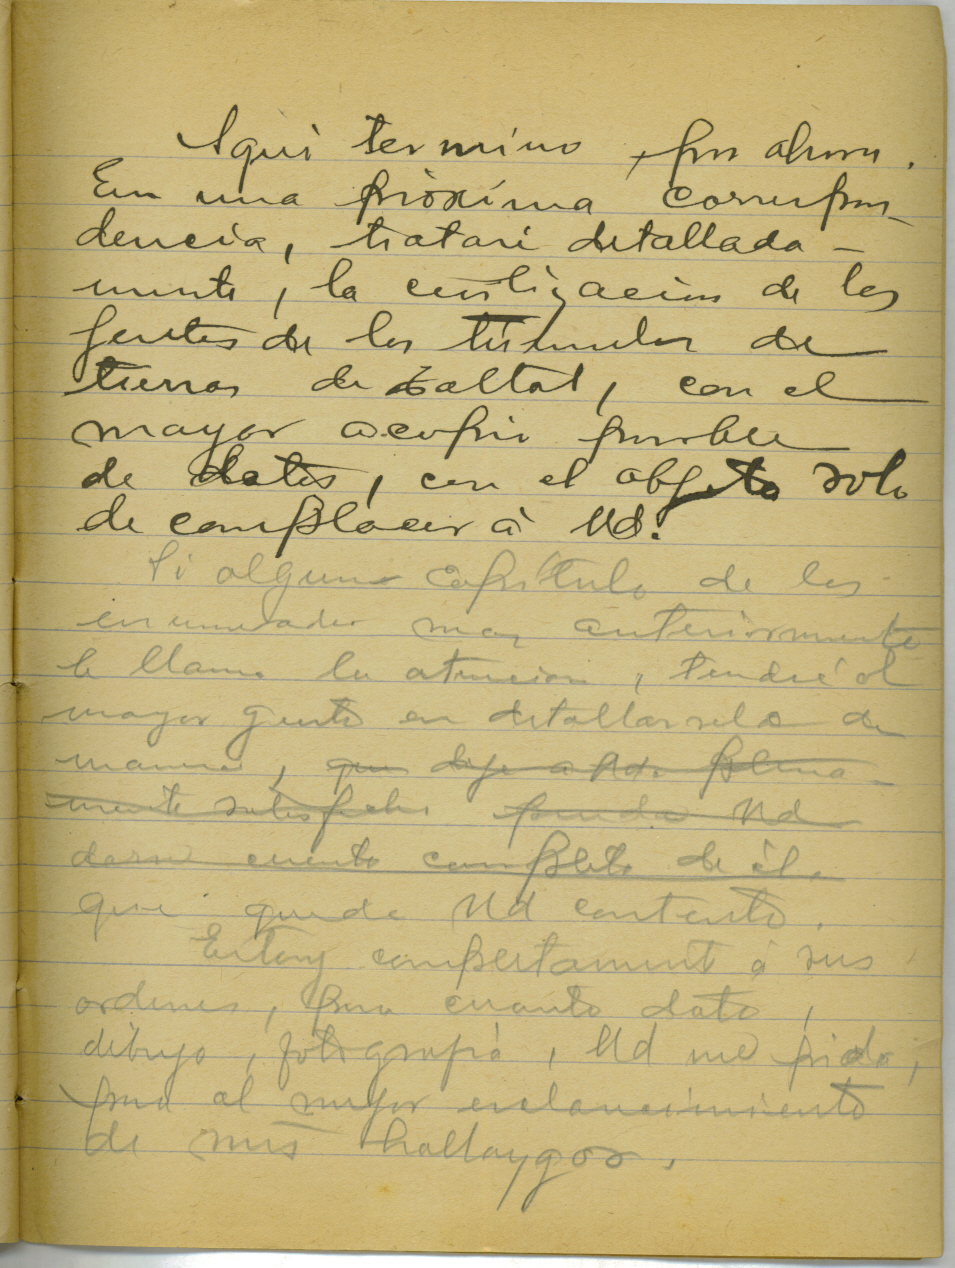 Aqui termino, por ahora.
En una próxima correspon-
dencia, trataré detallada-
mente, la civilización de las
gentes de los túmulos de
tierra de Taltal, con el
mayor acopio posible
de datos, con el objeto solo
de complacer á Ud.
Si algun capítulo de los
enumerados mas anteriormente
le llama la atencion, tendré el
mayor gusto en detallarselo de
manera, que deje a Ud. plena-
mente satisfecho pueda Ud
darse cuenta completa de él.
que quede Ud contento.
Estoy completament á sus
ordenes, para cuanto dato,
dibujo, fotografia, Ud me pida,
para al mejor esclarecimiento
de mis hallazgos.